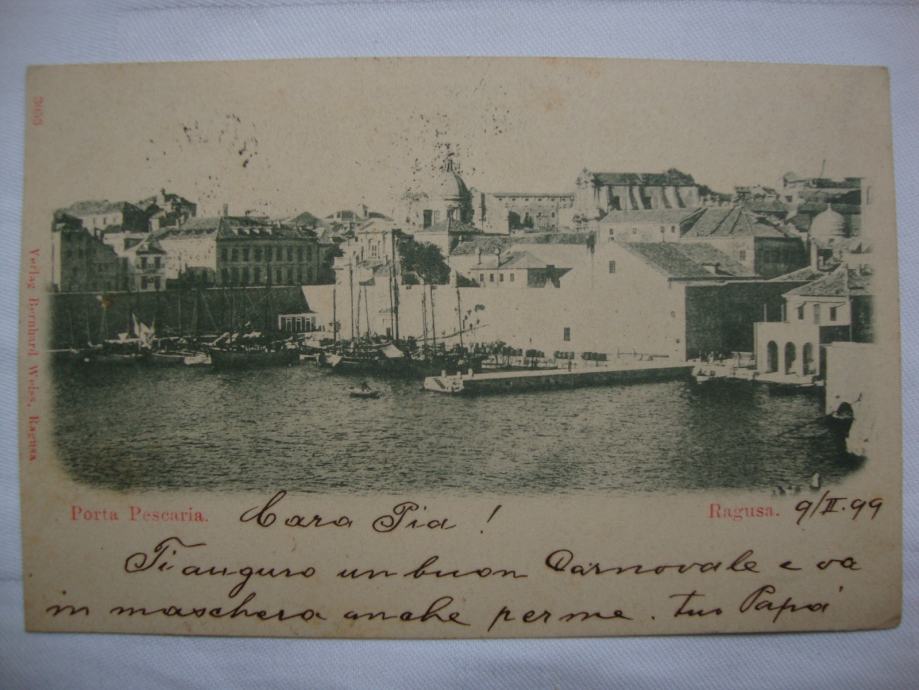 3065
Verlag Bernhard Weiss, Ragusa
Porta Pescaria.
Ragusa. 9/II.99
Cara Pia!
Ti auguro un buon Carnovale e va
in maschera anche per me. tuo Papá